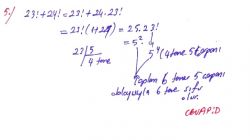 5.) 23!+24! = 23!+24.23!
= 23!(1+24) = 25.23!
= 5².
23 | 5
4 tane
5⁴ (4 tane 5 çarpanı
toplam 6 tane 5 çarpanı
dolayısıyla 6 tane sıfır
olur
CEVAP: D